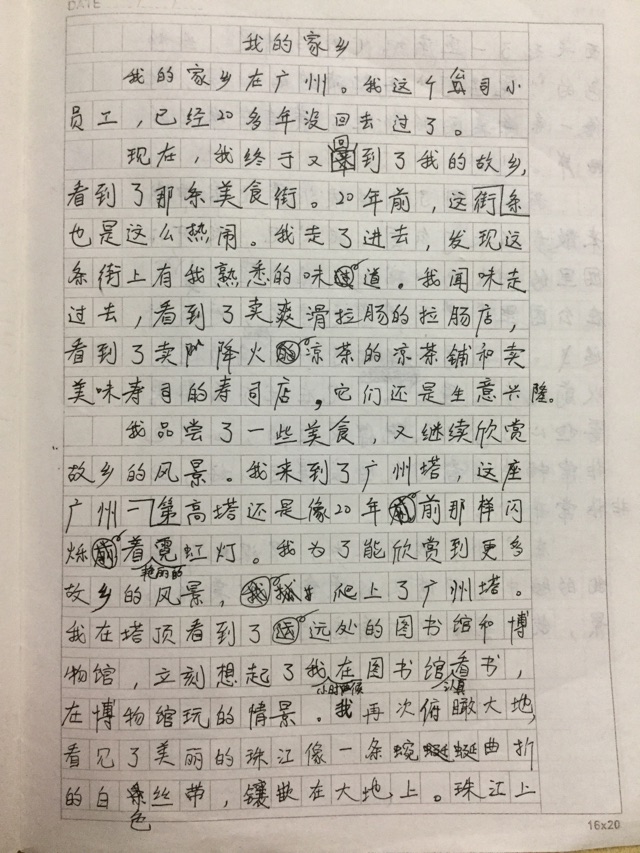 DATE
我的家乡
我的家乡在广州。我这个公司小
员工，已经20多年没回去过了。
现在，我终于又回到了我的故乡，
看到了那条美食街。20年前，这条街
也是这么热闹。我走了进去，发现这
条街上有我熟悉的味道。我闻味走
过去，看到了卖爽滑拉肠的拉肠店，
看到了卖降火凉茶的凉茶铺和卖
美味寿司的寿司店，它们还是生意兴隆。
我品尝了一些美食，又继续欣赏
故乡的风景。我来到了广州塔，这座
广州第一高塔还是像20年前那样闪
烁着霓虹灯。我为了能欣赏到更多
故乡的艳丽的风景，爬上了广州塔。
我在塔顶看到了远处的图书馆和博
物馆，立刻想起了我小时候在图书馆认真看书，
在博物馆玩的情景。我再次俯瞰大地，
看见了美丽的珠江像一条蜿蜒曲折
的白色丝带，镶嵌在大地上。珠江上
16x20